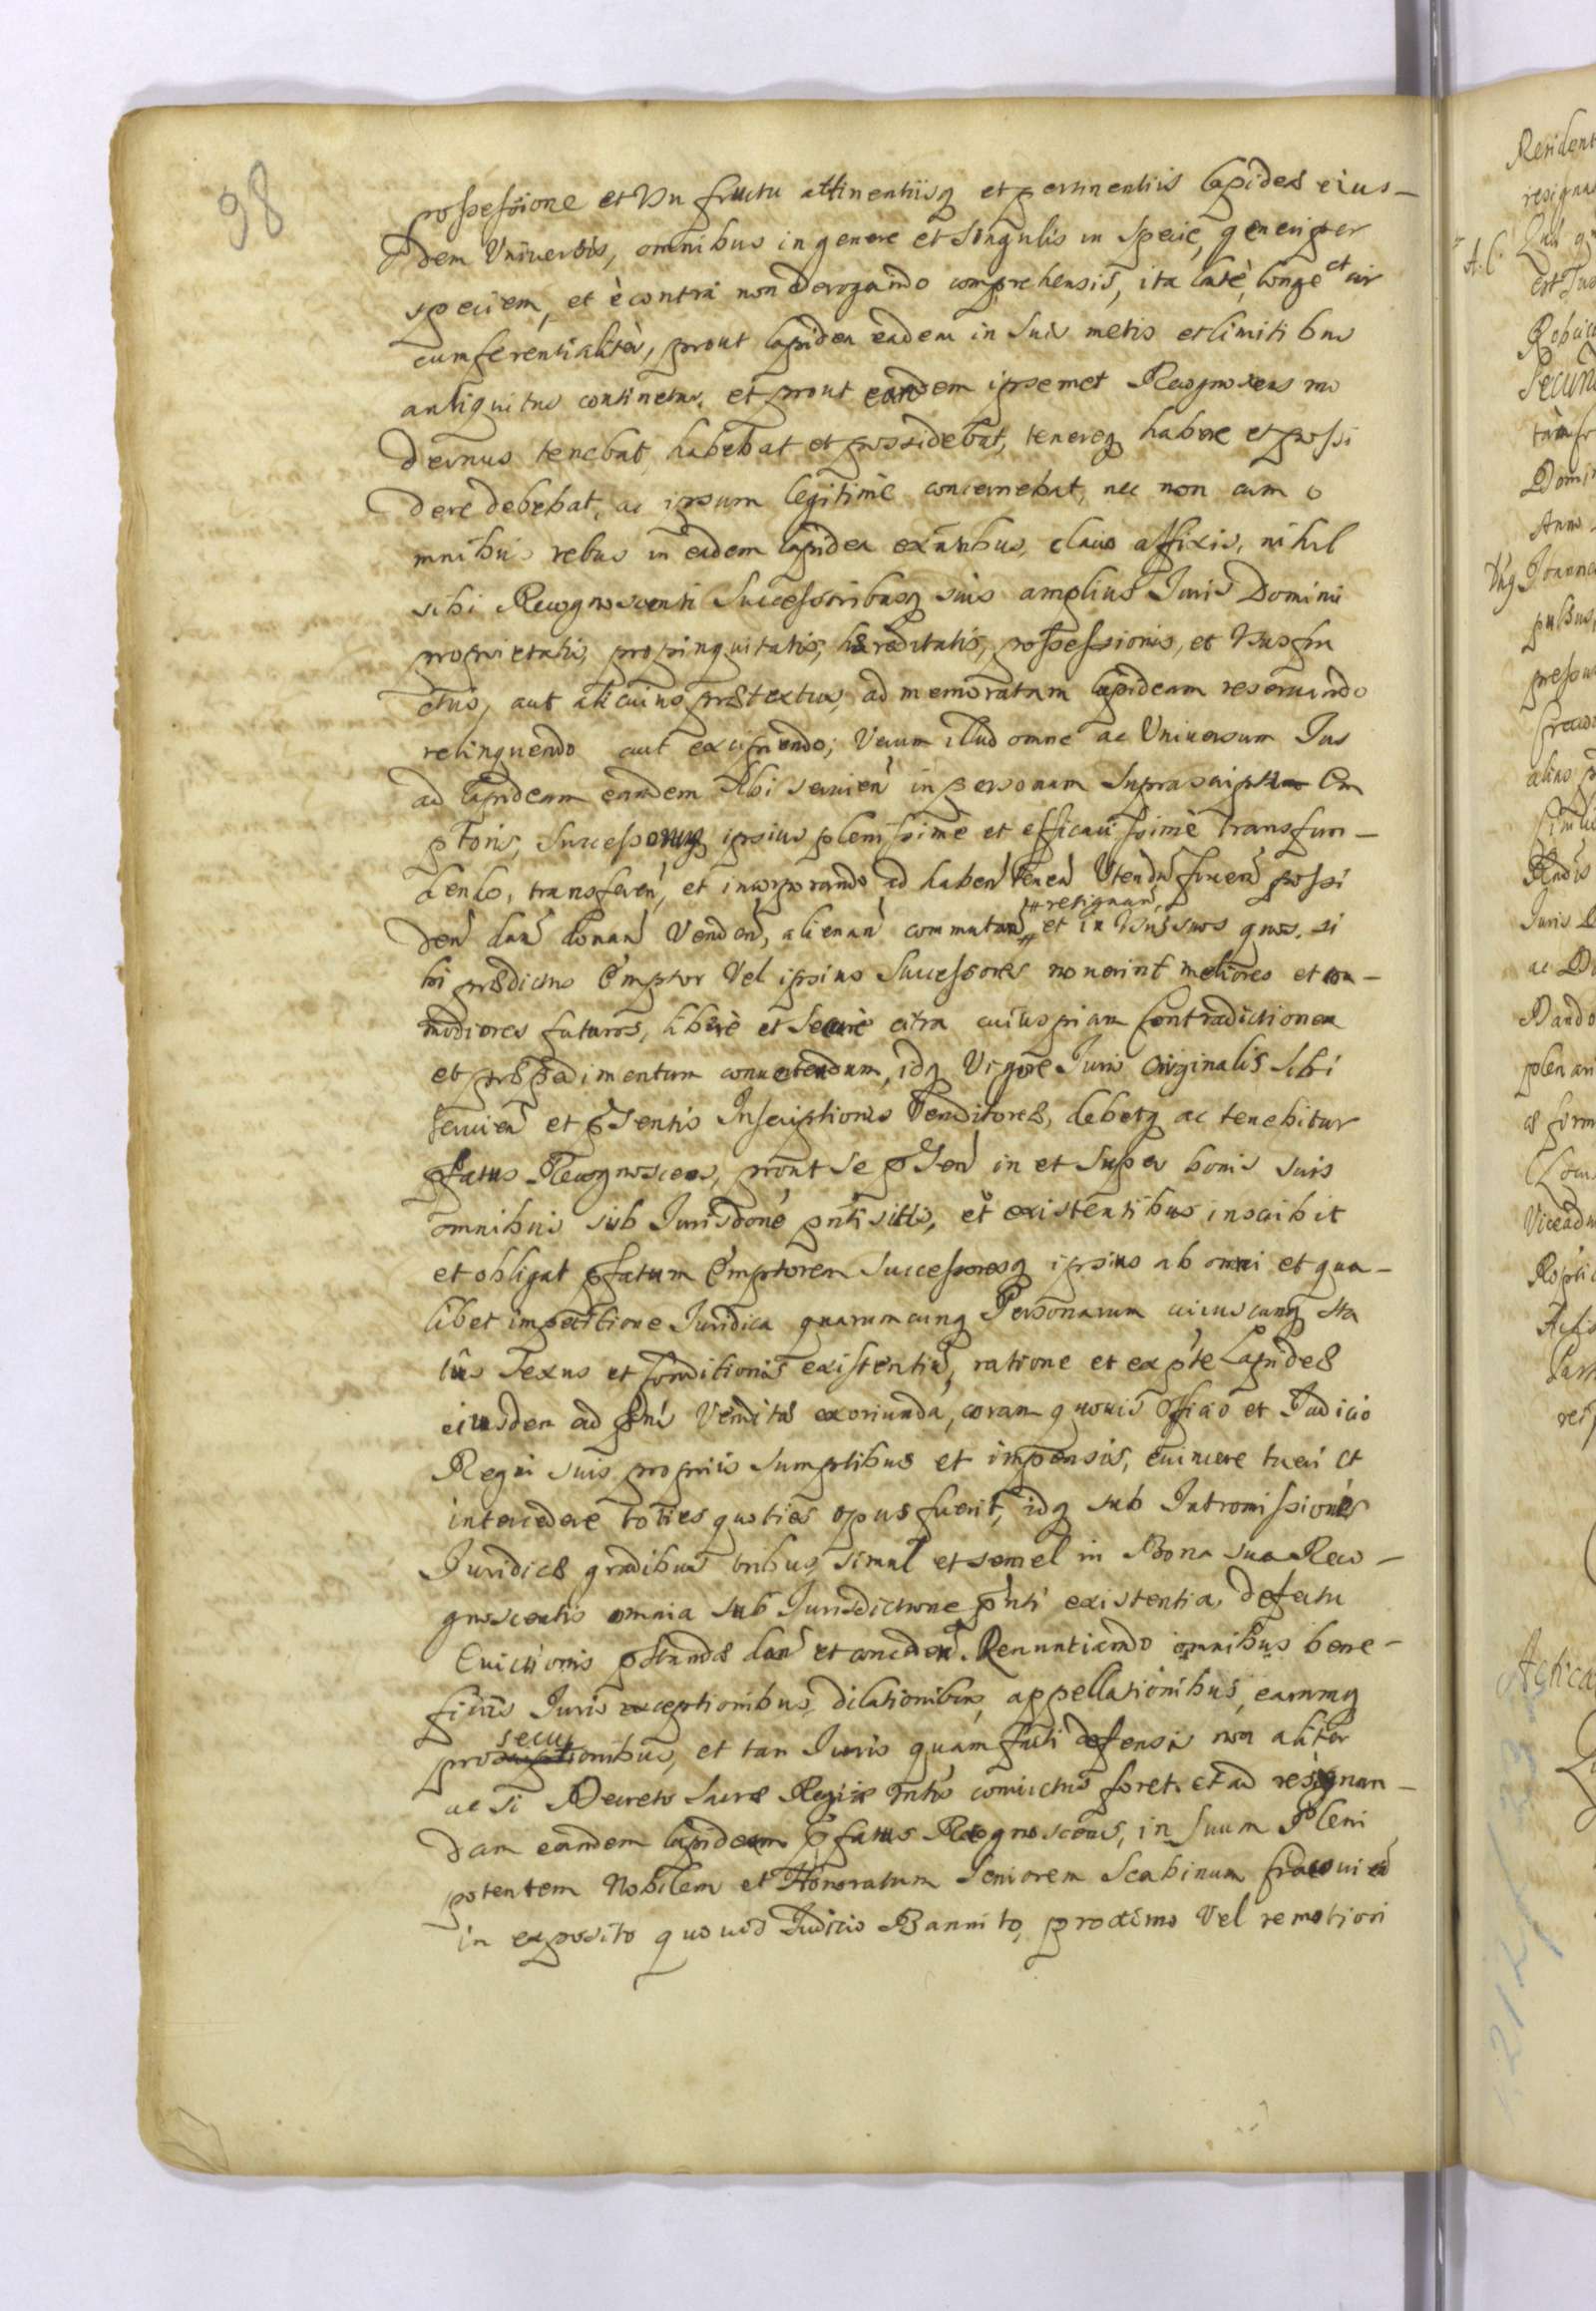 98
possessione et Usu fructu attinentiisq et pertinentiis lapideæ eius-
dem Universis, omnibus in genere et Singulis in Specie, generi per
speciem, et è contra non derogando comprehensis, ita latè, longè et cir
cumferentialitèr, prout lapidea eadem in Suis metis et limitibus
antiquitus continetur, et prout eandem ipsemet Recognoscens mo
dernus tenebat, habebat et possidebat, tenereq habere et possi
dere debebat, ac ipsum legitimè concernebat, nec non cum o
mnibus rebus in eadem lapidea exñtibus, clavo affixis, nihil
sibi Recognoscenti Successoribusq suis amplius Juris Dominii
proprietatis, propinquitatis, hæreditatis, possessionis, et Ususfru
ctus, aut alicuius prætextus, ad memoratam lapideam reservando
relinquendo aut excipiendo; Verum illud omne ac Universum Jus
ad lapideam eandem sibi servien in personam Suprascripti Em
ptoris, Successorumq ipsius plenissimè et efficacissimè transfun-
dendo, transferen, et incorporando, ad haben tenen Utendu fruen possi
den dan donan Venden, alienan commutan # et in Usus suos quos si
# resignan,
bi prædictus Emptor Vel ipsius Successores noverint meliores et com-
modiores futuros, liberè et Securè citra cuiuspiam Contradictionem
et præpedimentum convertendum, idq Vigore Juris Originalis Sibi
servien et pñsentis Inscriptionis Venditoreæ, debetq ac tenebitur
pfatus Recognoscens, prout se pñsen in et super bonis suis
omnibus sub Jurisdone pñti sitis, et existentibus inscribit
et obligat pfatum Emptorem Successoresq ipsius ab omni et qua-
libet impetitione Juridica quarumcunq Personarum cuiuscunq sta
tus Sexus et Conditionis existentiu, ratione et ex pte Lapideæ
eiusdem ad pñs Venditæ exoriunda, coram quovis Officio et Judicio
Regni suis propriis Sumptibus et impensis, evincere tueri et
intercedere toties quoties opus fuerit, idq sub Intromissionis
Juridicæ gradibus tribus, simul et semel in Bona sua Reco-
gnoscentis omnia sub Jurisdictione pñti existentia, defectu
Evictionis pstandæ dan et conceden. Renuntiando omnibus bene-
ficiis Juris exceptionibus, dilationibus, appellationibus, earumq
prosecutionibus, et tam Juris quam facti defensis non aliter
ac si Decreto Sacræ Regiæ Mttis convictus foret. Et ad resignan-
dam eandem lapideam pfatus Recognoscens, in Suum Pleni
potentem Nobilem et Honoratum Seniorem Scabinum Cracovien
in exposito quovis Judicio Bannito, proximo Vel remotiori